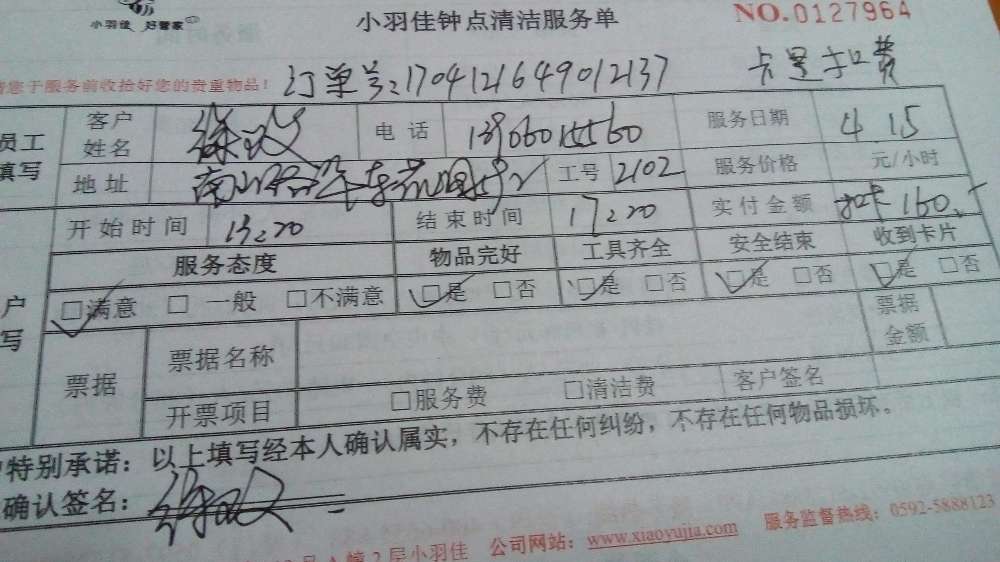 小羽佳 好管家
小羽佳钟点清洁服务单
NO.0127964
请您于服务前收拾好您的贵重物品！ 订单号:1704121649012137 卡里扣费
员工填写 客户姓名 徐 电话 服务日期 4 15
地址 南山路 工号 2102 服务价格 元/小时
开始时间 13:20 结束时间 17:20 实付金额 扣卡160.
服务态度 物品完好 工具齐全 安全结束 收到卡片
户写 □满意 □一般 □不满意 □是 □否 □是 □否 □是 □否 □是 □否
票据 票据名称 票据金额
开票项目 □服务费 □清洁费 客户签名
户特别承诺：以上填写经本人确认属实，不存在任何纠纷，不存在任何物品损坏。
确认签名：
2层小羽佳 公司网站：www.xiaoyujia.com 服务监督热线：0592-5888123